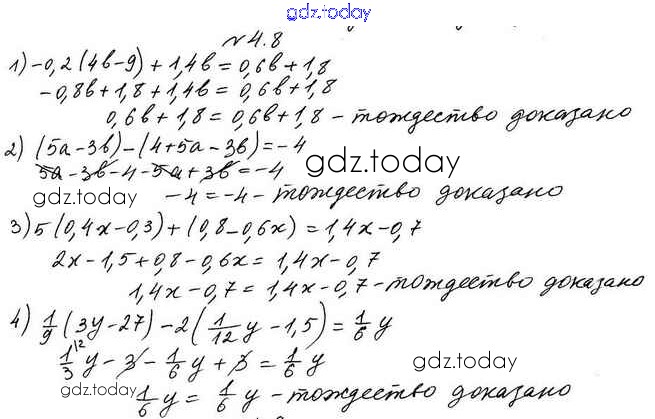 gdz.today
№4.8
1) -0,2(4b-9)+1,4b=0,6b+1,8
-0,8b+1,8+1,4b=0,6b+1,8
0,6b+1,8=0,6b+1,8 - тождество доказано
2) (5a-3b)-(4+5a-3b)=-4
gdz.today
5a-3b-4-5a+3b=-4
gdz.today
-4=-4 - тождество доказано
3) 5(0,4x-0,3)+(0,8-0,6x)=1,4x-0,7
2x-1,5+0,8-0,6x=1,4x-0,7
1,4x-0,7=1,4x-0,7 - тождество доказано
4) 1/9(3y-27)-2(1/12y-1,5)=1/6y
1/3y-3-1/6y+3=1/6y
gdz.today
gdz.today
1/6y=1/6y - тождество доказано